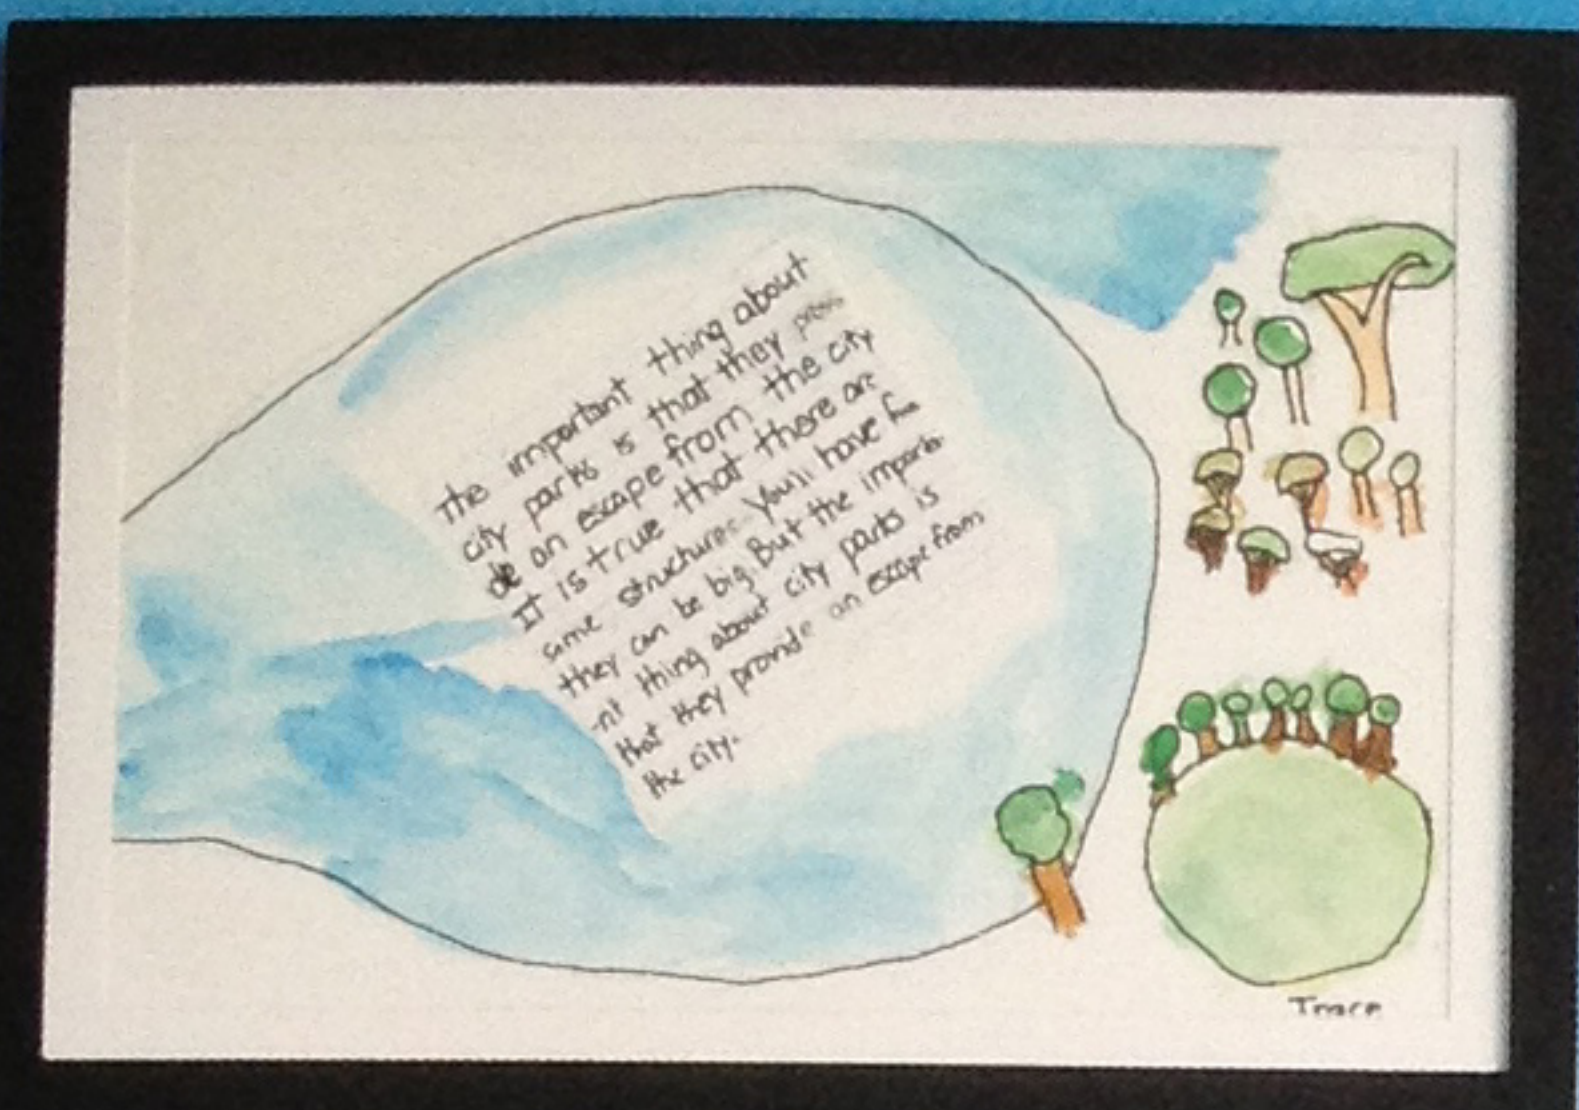 The important thing about
city parks is that they provi
de an escape from the city
It is true that there are
some structures. You'll have fun
they can be big. But the importa
-nt thing about city parks is
that they provide an escape from
the city.